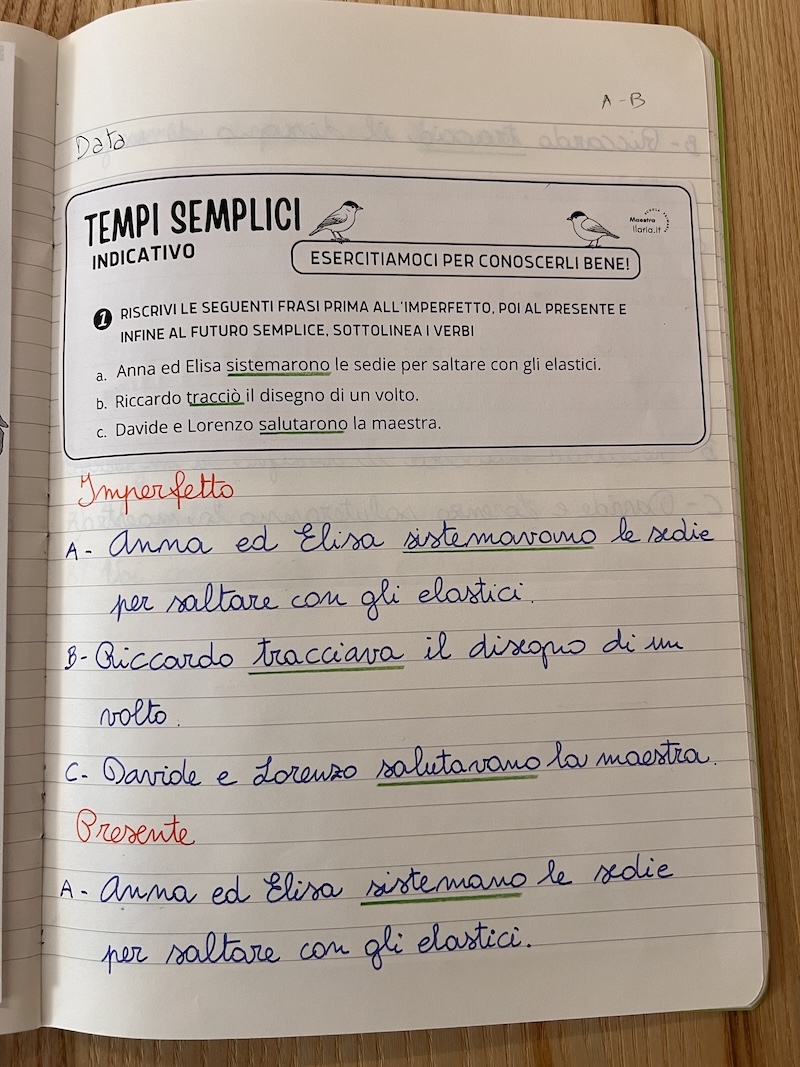 A - B
Data
TEMPI SEMPLICI
INDICATIVO
Maestra
Ilaria.it
ESERCITIAMOCI PER CONOSCERLI BENE!
1 RISCRIVI LE SEGUENTI FRASI PRIMA ALL'IMPERFETTO, POI AL PRESENTE E
INFINE AL FUTURO SEMPLICE, SOTTOLINEA I VERBI
a. Anna ed Elisa sistemarono le sedie per saltare con gli elastici.
b. Riccardo tracciò il disegno di un volto.
c. Davide e Lorenzo salutarono la maestra.
Imperfetto
A - Anna ed Elisa sistemavano le sedie
per saltare con gli elastici.
B- Riccardo tracciava il disegno di un
volto.
C- Davide e Lorenzo salutavano la maestra.
Presente
A - Anna ed Elisa sistemano le sedie
per saltare con gli elastici.